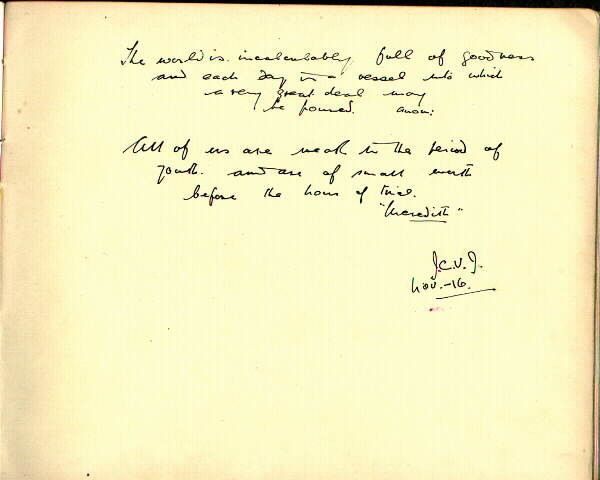 The world is incalculably full of goodness
and each day is a vessel into which
a very great deal may
be poured. anon:
All of us are weak in the period of
youth. and are of small worth
before the hour of trial.
"Meredith"
J.C.V.J.
Nov.-16.